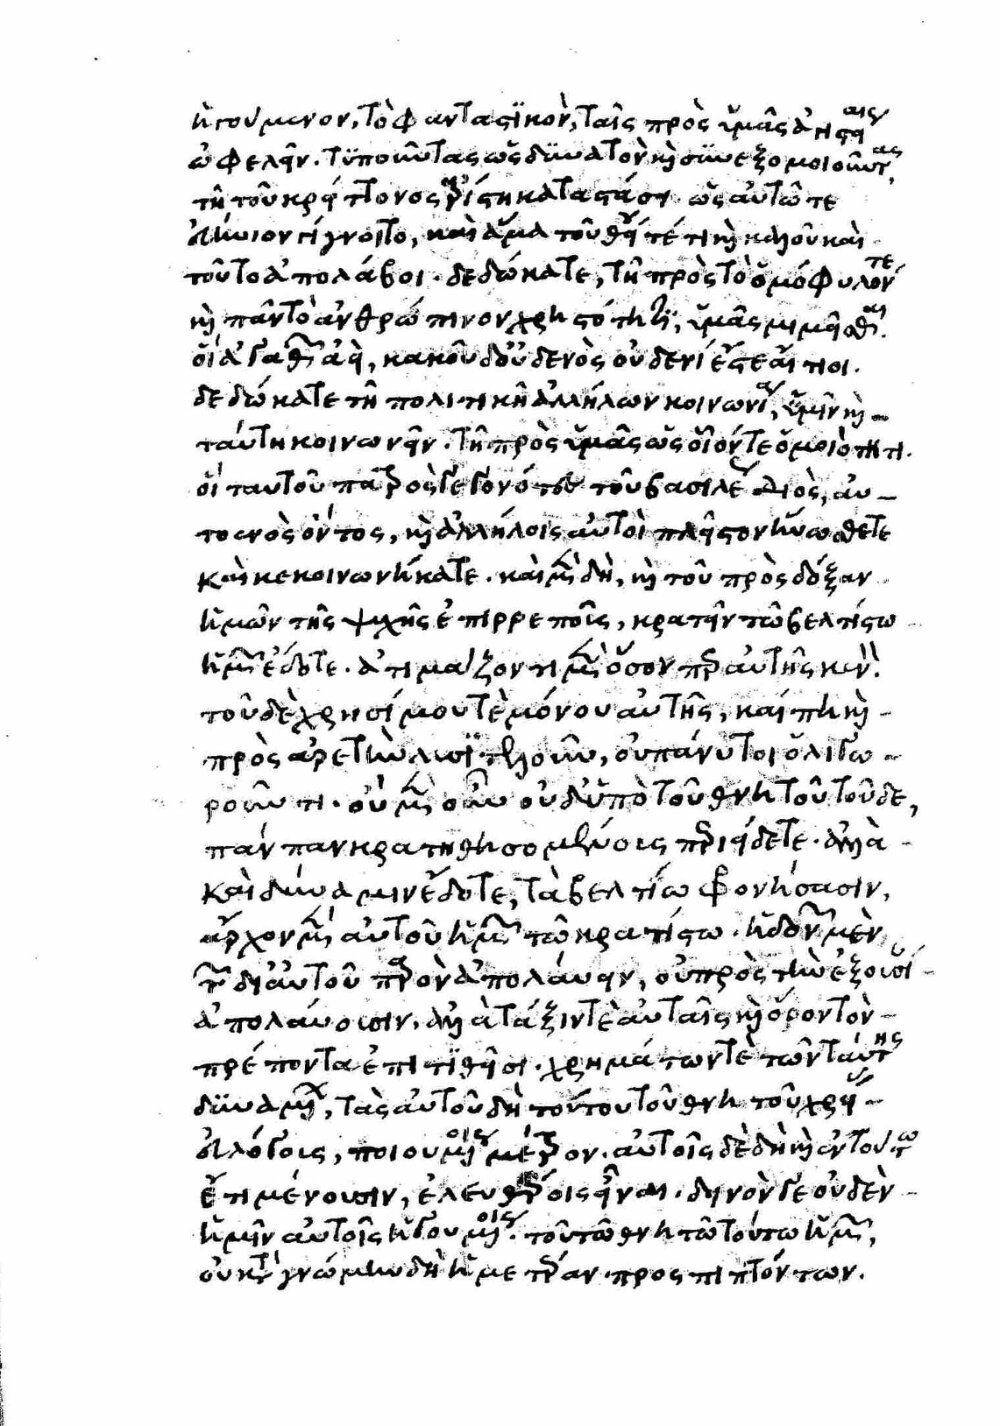 ἡγούμενον, τὸ φανταστικὸν, ταῖς πρὸς ὑμᾶς ἁγιστείαις
ὠφελεῖν. τυποῦντας ὡς δυνατὸν καὶ συνεξομοιοῦντας,
τῇ τοῦ κρείττονος ἀρίστῃ καταστάσει ὡς αὐτῶ τε
γίγνοιτο, καὶ ἅμα τοῦ θείου τέ τι καὶ καλοῦ καὶ
τοῦτο ἀπολάβοι. δεδώκατε, τῇ πρὸς τὸ ὁμόφυλόν τε
καὶ πᾶν τὸ ἀνθρώπινον χρηστότητι, ὑμᾶς μιμεῖσθαι.
οἳ ἀγαθοῦ ἀεὶ, κακοῦ δ' οὐδενὸς οὐδενί ἐστε αἴτιοι.
δεδώκατε τῇ πολιτικῇ ἀλλήλων κοινωνίᾳ, ὑμῖν καὶ
ταύτῃ κοινωνεῖν. τῇ πρὸς ὑμᾶς ὡς οἷόν τε ὁμοιότητι.
οἳ ταυτοῦ πατρὸς γεγονότες τοῦ βασιλέως Διὸς, αὐ-
τοενὸς ὄντος, καὶ ἀλλήλοις αὐτοὶ πλεῖστον ἥνωσθέ τε
καὶ κεκοινωνήκατε. καὶ μὲν δὴ, καὶ τοῦ πρὸς δόξαν
ἡμῶν τῆς ψυχῆς ἐπιρρεποῦς, κρατεῖν τῶ βελτίστω
ἡμῶν ἔδοτε. ἀτιμάζοντι μὲν ὅσον περ αὐτῆς κενὸν.
τοῦ δὲ χρησίμου τε μόνου αὐτῆς, καί πη καὶ
πρὸς ἀρετὴν λυσιτελοῦν, οὐ πάνυ τοι ὀλιγω-
ροῦντι. οὐ μὲν οὖν οὐδ' ὑπὸ τοῦ θνητοῦ τοῦδε,
πάν παν κρατηθησομένους περιείδετε. ἀλλὰ
καὶ δύναμιν ἔδοτε, τὰ βελτίω φρονήσασιν,
ἄρχον μὲν αὐτοῦ ἡμῶν τῶ κρατίστω. ἡδονῶν μὲν
τῶν δι' αὐτοῦ παρὸν ἀπολαύειν, οὐ πρὸς τὴν ἐξ
ἀπολαύουσιν, ἀλλὰ τάξιν τε αὐταῖς καὶ ὅρον τὸν
πρέποντα ἐπιτιθεῖσι. χρημάτων τε τῶν ταύτης
δυνάμεων, τὰς αὐτοῦ δὴ τούτου τοῦ θνητοῦ χρείας
εὐλόγοις, ποιουμένοις μέτρον. αὐτοῖς δὲ δὴ καὶ ἀπὸ τούτω
ἔτι μένουσιν, ἐλευθέροις εἶναι. δεινὸν δὲ οὐδὲν
ἡμῖν αὐτοῖς ἡγουμένοις. τοῦ τῶ θνητῶ τούτω ἡμῶν,
οὐ κατὰ γνώμην δὴ ἡμετέραν προσπιπτόντων.